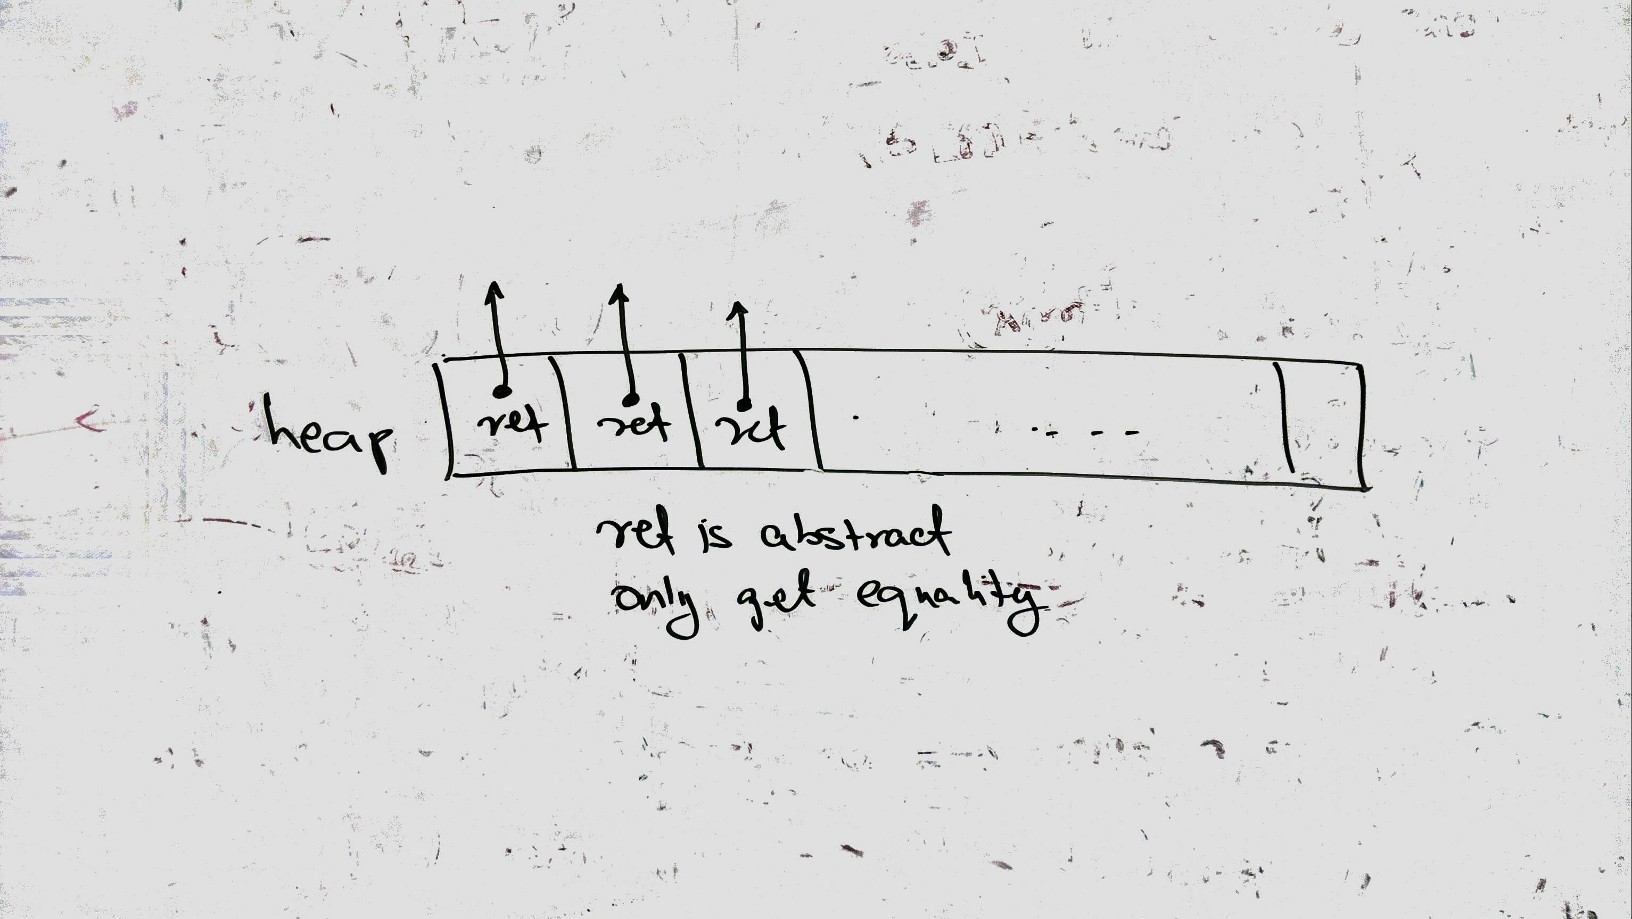 heap ref ref ref . . . - -
ref is abstract
only get equality